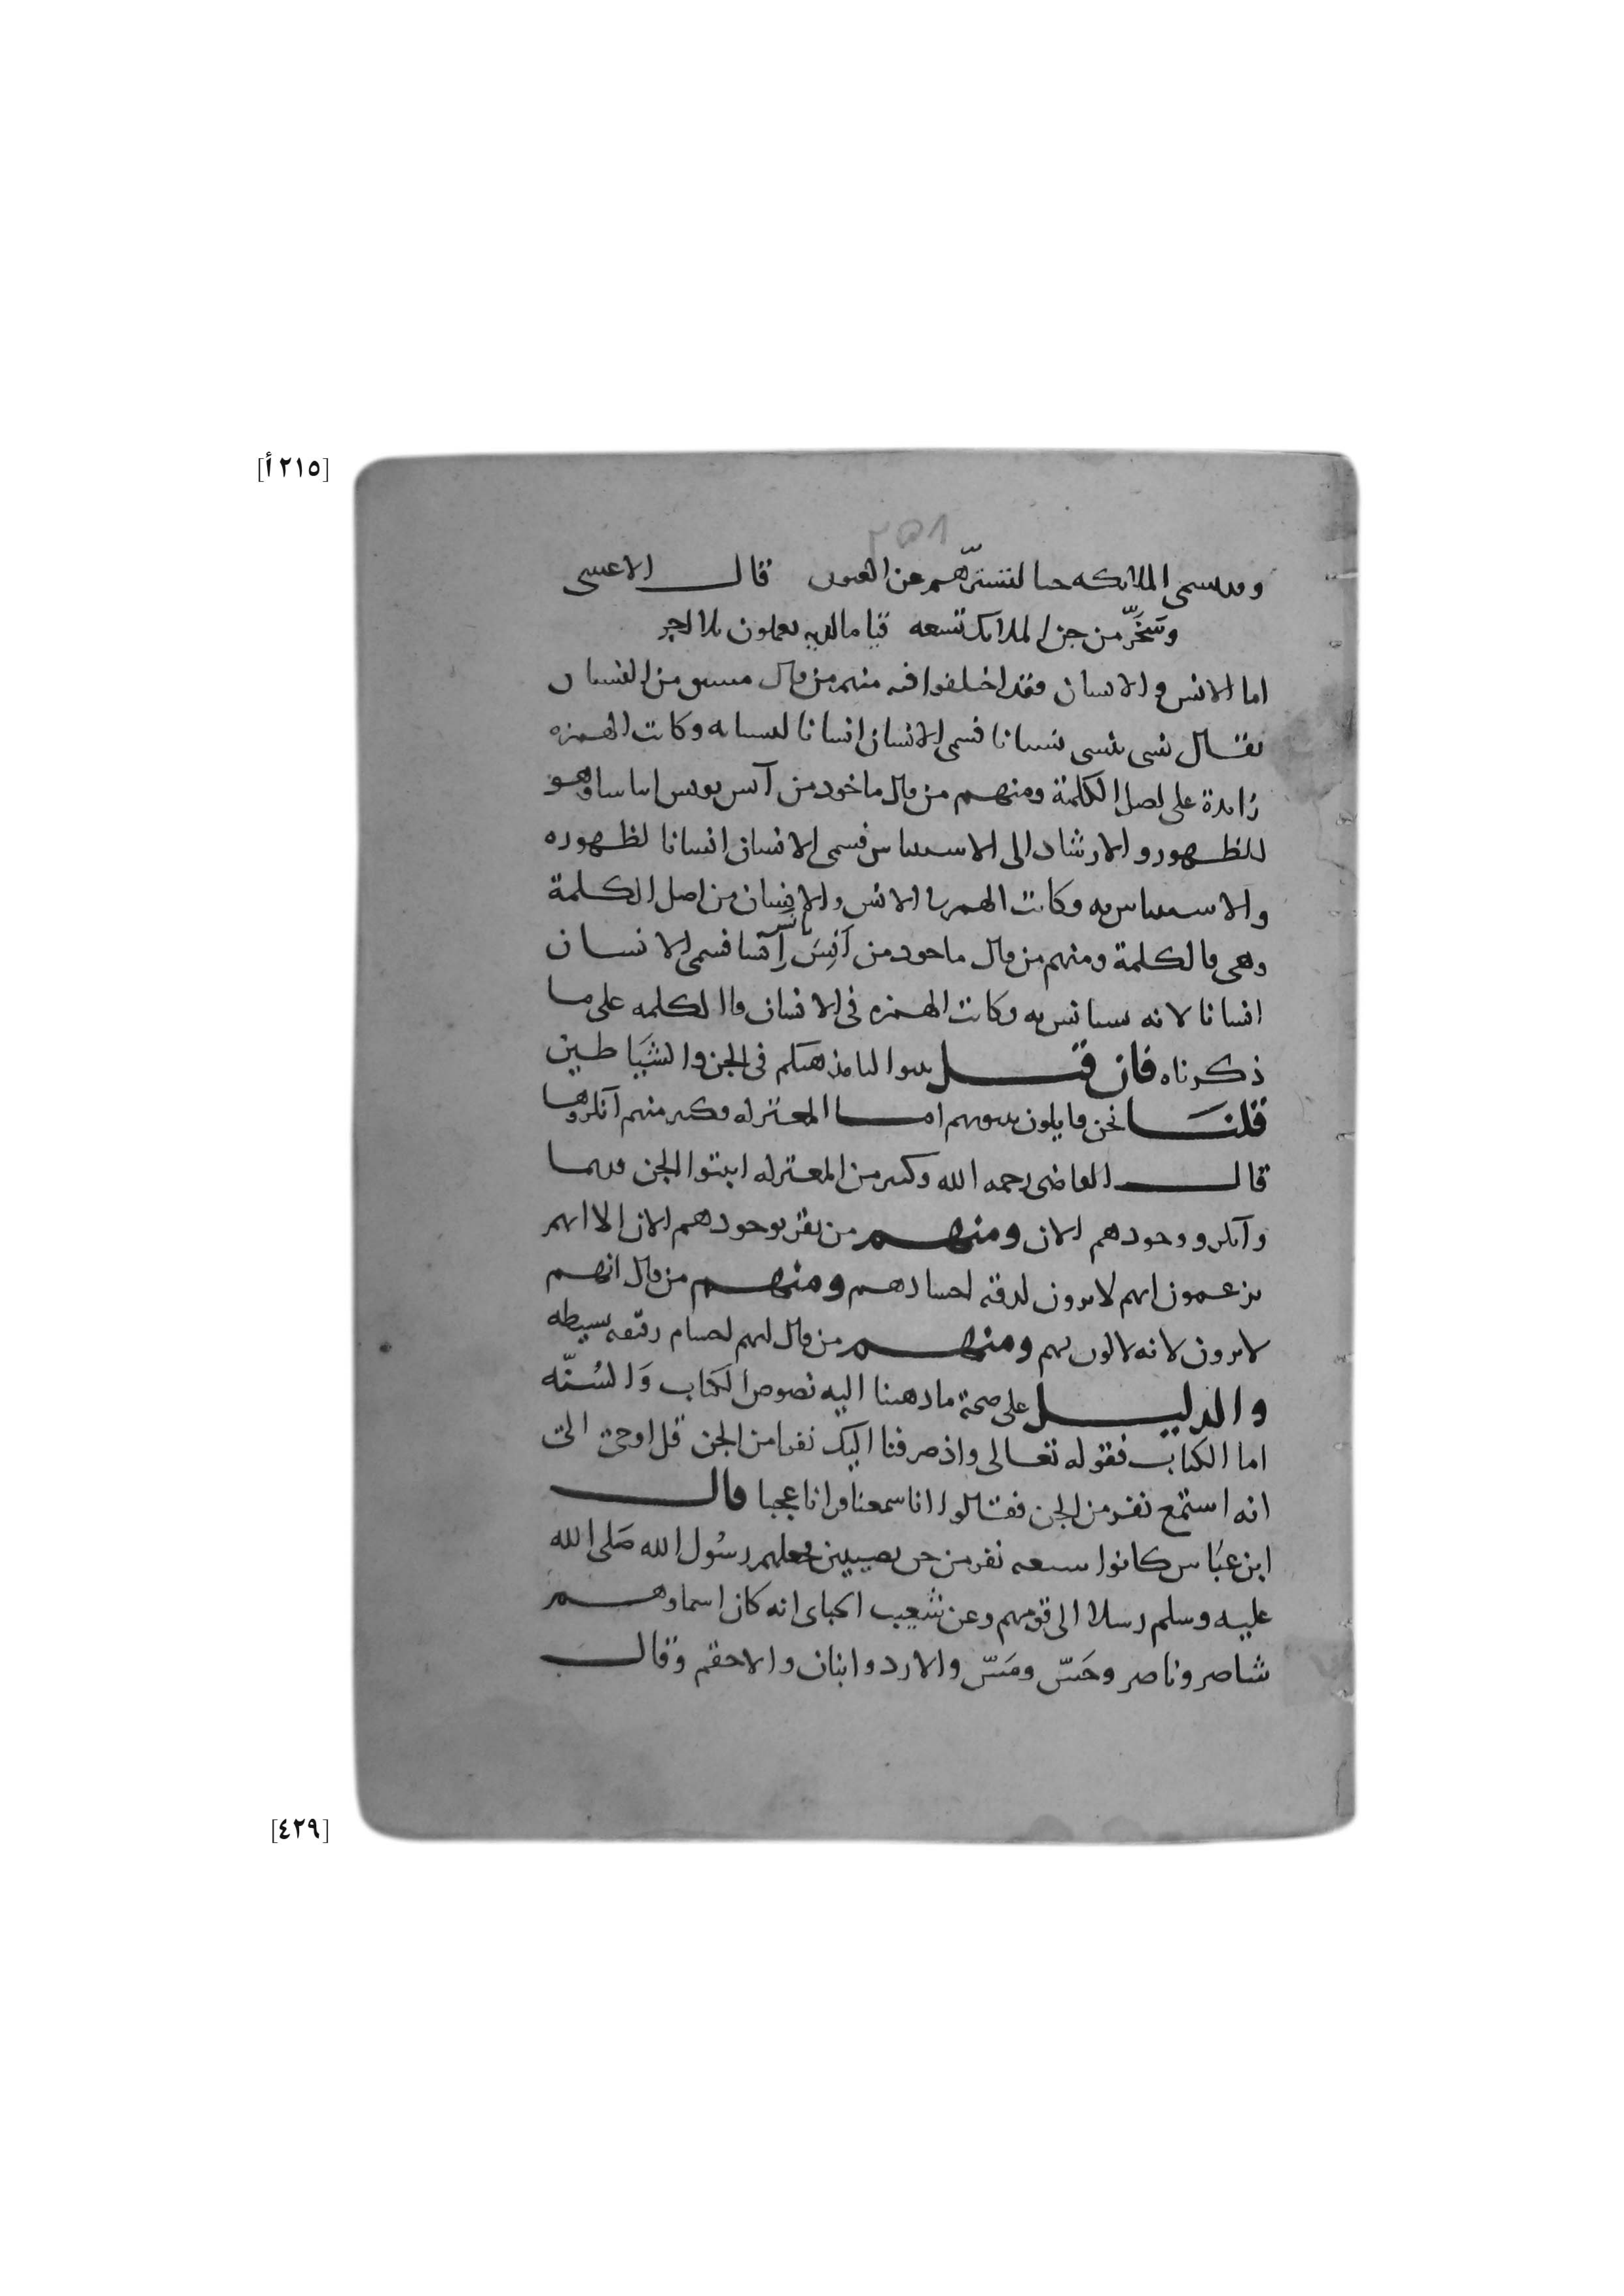 [٢١٥ أ]
٢٥١
وقد سمى الملائكة جنا لتسترهم عن العيون قال الاعشى
وسخر من جن الملائك تسعه قياما لديه يعملون بلا اجر
اما الانس والانسان فقد اختلفوا فيه منهم من قال مشتق من النسيان
يقال نسي ينسى نسيانا فسمى الانسان انسانا لنسيانه وكانت الهمزه
زايدة على اصل الكلمة ومنهم من قال ماخوذ من آنس يونس ايناسا وهو
الظهور والارشاد الى الاستيناس فسمى الانسان انسانا لظهوره
والاستيناس به وكانت الهمزة الانس والانسان من اصل الكلمة
وهي فا الكلمة ومنهم من قال ماخوذ من أنس يأنس أنسا فسمى الانسان
انسانا لانه يستانس به وكانت الهمزه في الانسان فا الكلمه على ما
ذكرناه فان قيل بينوا لنا مذهبكم في الجن والشياطين
قلنا نحن قايلون بثبوتهم اما المعتزله فكثير منهم انكروها
قال القاضي رحمه الله وكثير من المعتزله اثبتوا الجن قديما
وانكروا وجودهم الان ومنهم من يقر بوجودهم الان الا انهم
يزعمون انهم لا يرون لدقة اجسادهم ومنهم من قال انهم
لا يرون لانه لا لون لهم ومنهم من قال انهم اجسام رقيقه بسيطه
والدليل على صحة ما ذهبنا اليه نصوص الكتاب والسنه
اما الكتاب فقوله تعالى واذ صرفنا اليك نفرا من الجن قل اوحي الى
انه استمع نفر من الجن فقالوا انا سمعنا قرانا عجبا قال
ابن عباس كانوا سبعه نفر من جن نصيبين فجعلهم رسول الله صلى الله
عليه وسلم رسلا الى قومهم وعن شعيب الجباى انه كان اسماوهم
شاصر وناصر وحس ومس والارد وابنان والاحقم وقال
[٤٢٩]